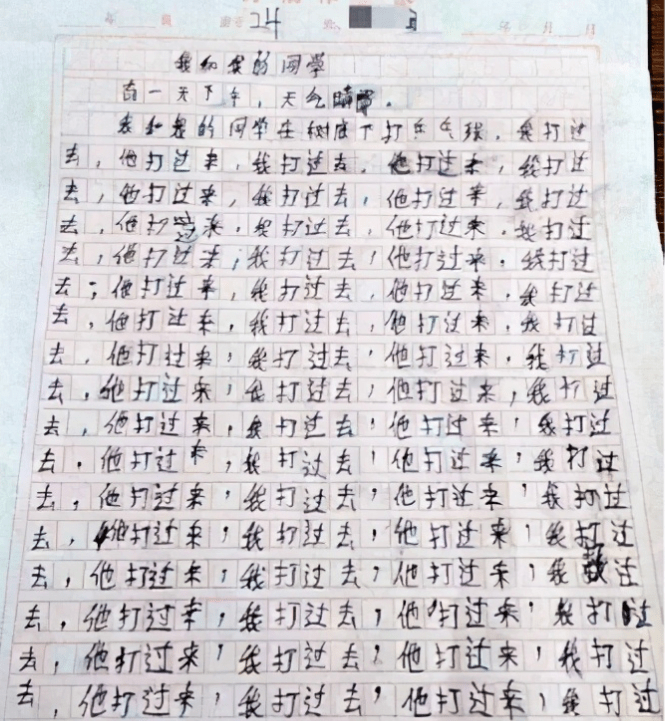 24
年 月 日
我和我的同学
有一天下午，天气晴。
我和我的同学在树底下打乒乓球，我打过
去，他打过来，我打过去，他打过来，我打过
去，他打过来，我打过去，他打过来，我打过
去，他打过来，我打过去，他打过来，我打过
去，他打过来，我打过去，他打过来，我打过
去，他打过来，我打过去，他打过来，我打过
去，他打过来，我打过去，他打过来，我打过
去，他打过来，我打过去，他打过来，我打过
去，他打过来，我打过去，他打过来，我打过
去，他打过来，我打过去，他打过来，我打过
去，他打过来，我打过去，他打过来，我打过
去，他打过来，我打过去，他打过来，我打过
去，他打过来，我打过去，他打过来，我打过
去，他打过来，我打过去，他打过来，我过
去，他打过来，我打过去，他打过来，我打过
去，他打过来，我打过去，他打过来，我打过
去，他打过来，我打过去，他打过来，我打过